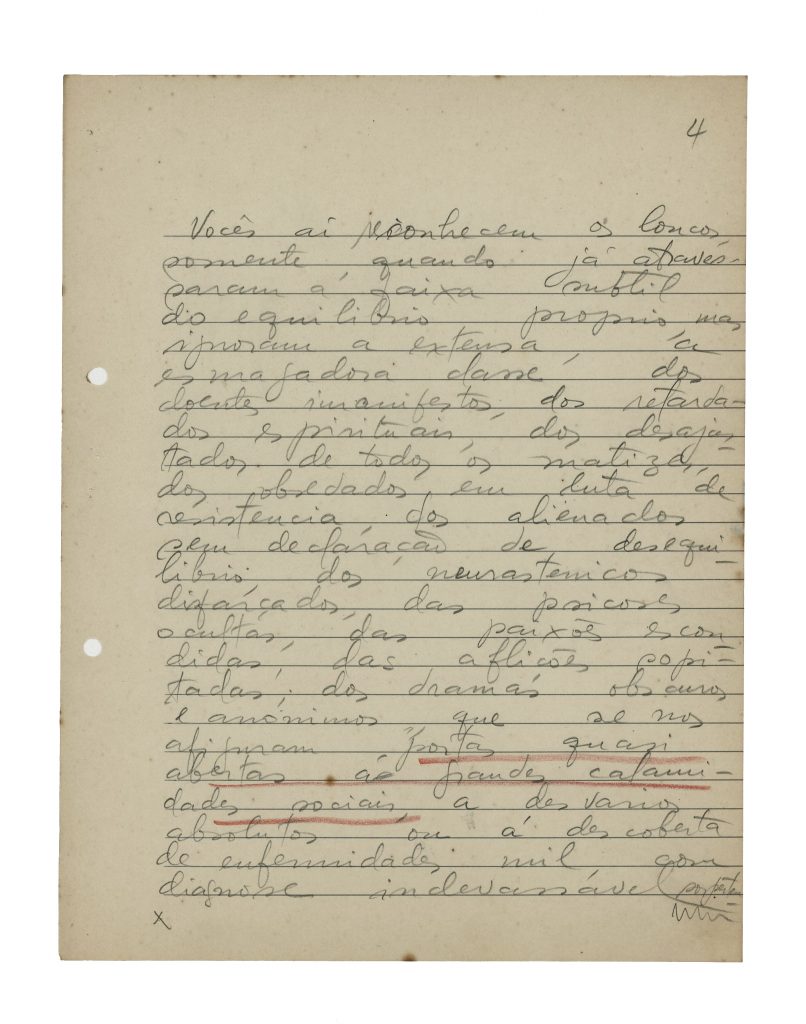 4
Vocês aí reconhecem os loucos
somente quando já atraves-
saram a faixa subtil
do equilibrio proprio, mas
ignoram a extensa, a
esmagadora classe dos
doentes imanifestos, dos retarda-
dos espirituais, dos desajus-
tados de todos os matizes,
dos obsedados em luta de
resistencia, dos alienados
sem declaração de desequi-
librio, dos neurastenicos
disfarçados, das psicoses
ocultas, das paixões escon-
didas, das aflições sopi-
tadas, dos dramas obscuros
e anónimos que se nos
afiguram portas quasi
abertas ás grandes calami-
dades sociais, a desvarios
absolutos ou á descoberta
de enfermidades mil com
diagnose indevassável
x